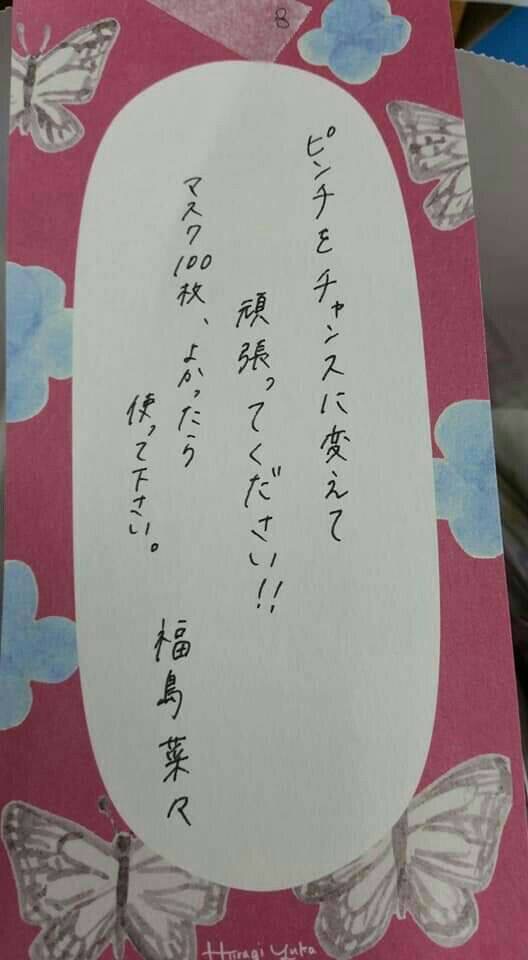 8
ピンチをチャンスに変えて
頑張ってください!!
マスク100枚、よかったら
使って下さい。
福島菜々
Hiiragi Yuka